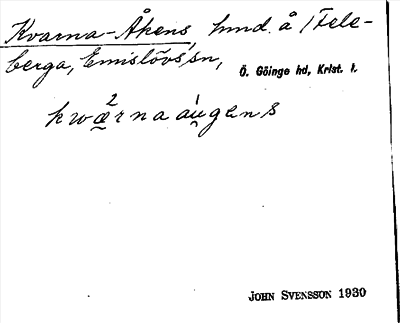 Kvarna-Åkens, hmd. å /Fele-
berga, Emislövs sn,
Ö. Göinge hd, Krist. l.
kwæ²rna aù́gens
JOHN SVENSSON 1930